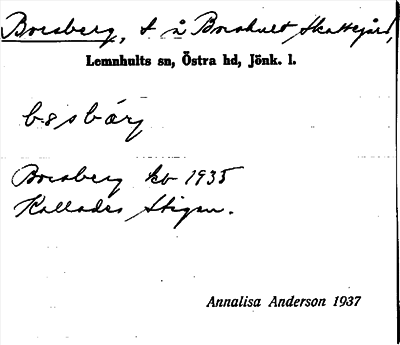 Boesberg, t. å Boeshult Skattegård,
Lemnhults sn, Östra hd, Jönk. l.
Boesberg kb 1935
Kallades Stigen.
Annalisa Anderson 1937